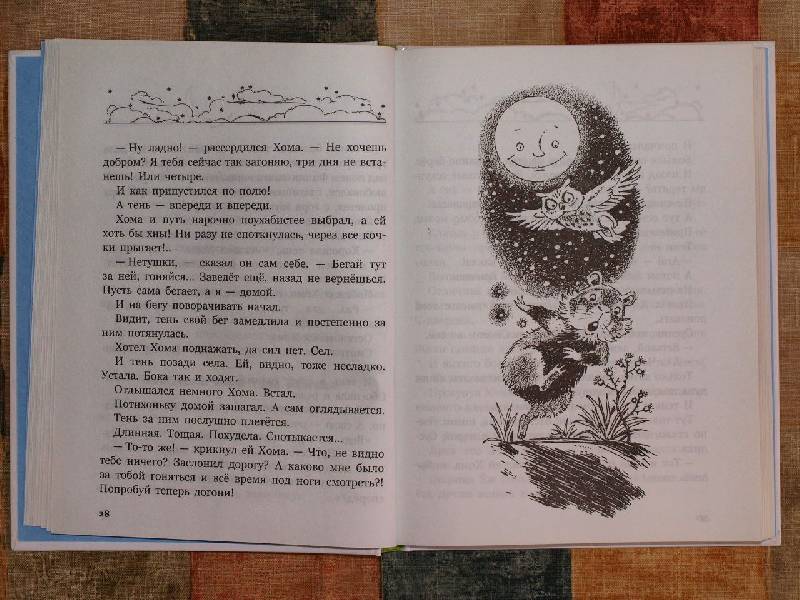 — Ну ладно! — рассердился Хома. — Не хочешь
добром? Я тебя сейчас так загоняю, три дня не вста-
нешь! Или четыре.
И как припустился по полю!
А тень — впереди и впереди.
Хома и путь нарочно поухабистее выбрал, а ей
хоть бы хны! Ни разу не споткнулась, через все коч-
ки прыгает!..
— Нетушки, — сказал он сам себе. — Бегай тут
за ней, гоняйся... Заведёт ещё, назад не вернёшься.
Пусть сама бегает, а я — домой.
И на бегу поворачивать начал.
Видит, тень свой бег замедлила и постепенно за
ним потянулась.
Хотел Хома поднажать, да сил нет. Сел.
И тень позади села. Ей, видно, тоже несладко.
Устала. Бока так и ходят.
Отдышался немного Хома. Встал.
Потихоньку домой зашагал. А сам оглядывается.
Тень за ним послушно плетётся.
Длинная. Тощая. Похудела. Спотыкается...
— То-то же! — крикнул ей Хома. — Что, не видно
тебе ничего? Заслонил дорогу? А каково мне было
за тобой гоняться и всё время под ноги смотреть?!
Попробуй теперь догони!
28